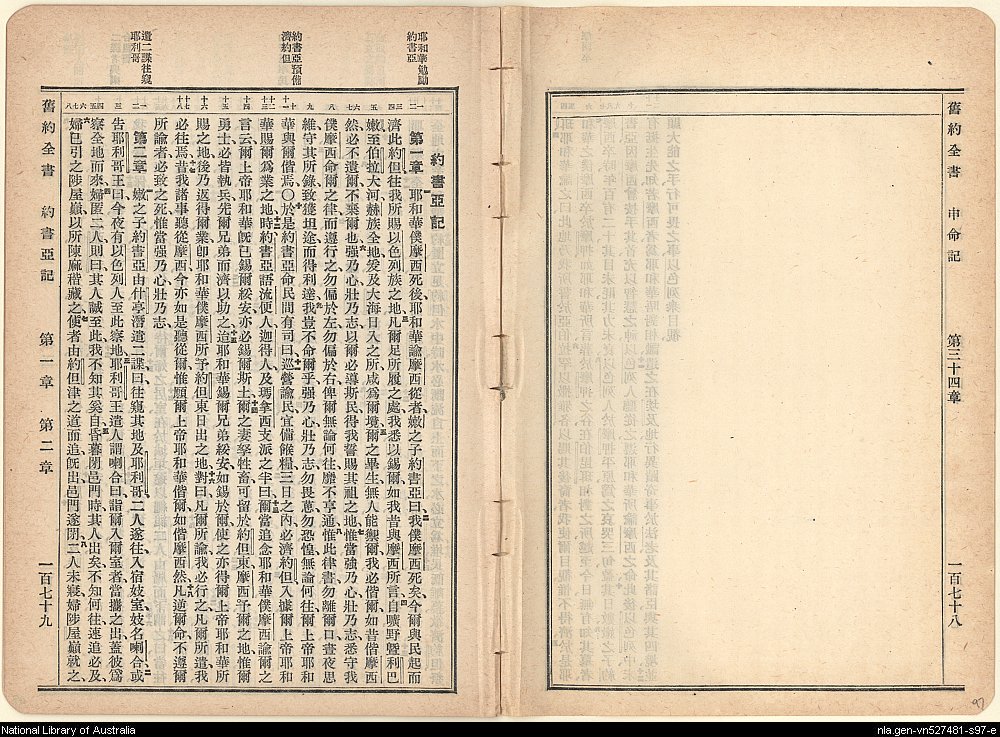 舊約全書 申命記 第三十四章 一百七十八
耶和華勉勵
約書亞
約書亞預備
濟約但
遣二諜往窺
耶利哥
約書亞記
第一章 耶和華僕摩西死後耶和華諭摩西從者嫩之子約書亞曰我僕摩西死矣今爾與民起而
濟此約但往我所賜以色列族之地凡爾足所履之處我悉以錫爾如我昔與摩西所言自曠野暨利巴
嫩至伯拉大河赫族全地爰及大海日入之所咸爲爾境爾之畢生無人能禦爾我必偕爾如昔偕摩西
然必不遺爾不棄爾也强乃心壯乃志以爾必導斯民得我誓賜其祖之地惟當强乃心壯乃志悉守我
僕摩西命爾之律而遵行之勿偏於左勿偏於右俾爾無論何往靡不亨通惟此律書勿離爾口晝夜思
維守其所錄致獲坦途而得利達我豈不命爾乎强乃心壯乃志勿畏葸勿恐惶無論何往爾上帝耶和
華與爾偕焉〇於是約書亞命民間有司曰巡營諭民宜備餱糧三日之內必濟約但入據爾上帝耶和
華賜爾爲業之地時約書亞語流便人迦得人及瑪拿西支派之半曰爾當追念耶和華僕摩西諭爾之
言云爾上帝耶和華旣已錫爾綏安亦必錫爾斯土爾之妻孥牲畜可留於約但東摩西予爾之地惟爾
勇士必皆執兵先爾兄弟而濟以助之迨耶和華錫爾兄弟綏安如錫於爾使之亦得爾上帝耶和華所
賜之地後乃返得爾業卽耶和華僕摩西所予約但東日出之地對曰凡爾所諭我必行之凡爾所遣我
必往焉昔我諸事聽從摩西今亦如是聽從爾惟願爾上帝耶和華偕爾如偕摩西然凡逆爾命不遵爾
所諭者必致之死惟當强乃心壯乃志
第二章 嫩之子約書亞由什亭潛遣二諜曰往窺其地及耶利哥二人遂往入宿妓室妓名喇合或
告耶利哥王曰今夜有以色列人至此察地耶利哥王遣人謂喇合曰詣爾入爾室者當攜之出蓋彼爲
察全地而來婦匿二人則曰其人誠至此我不知其奚自昏暮閉邑門時其人出矣不知何往速追必及
婦已引之陟屋巔以所陳麻稭藏之使者由約但津之道而追旣出邑門遂閉二人未寢婦陟屋巔就之
舊約全書 約書亞記 第一章 第二章 一百七十九
97
National Library of Australia
nla.gen-vn527481-s97-e